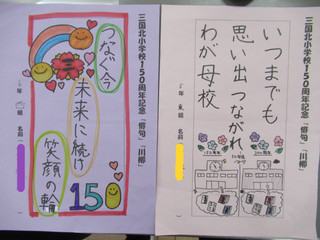 三国北小学校150周年記念「俳句」「川柳」
いつまでも
思い出つながれ
わが母校
年 組 名前
三国北小学校150周年記念「俳句」「川柳」
つなぐ今
未来に続け
笑顔の輪
150
年 組 名前